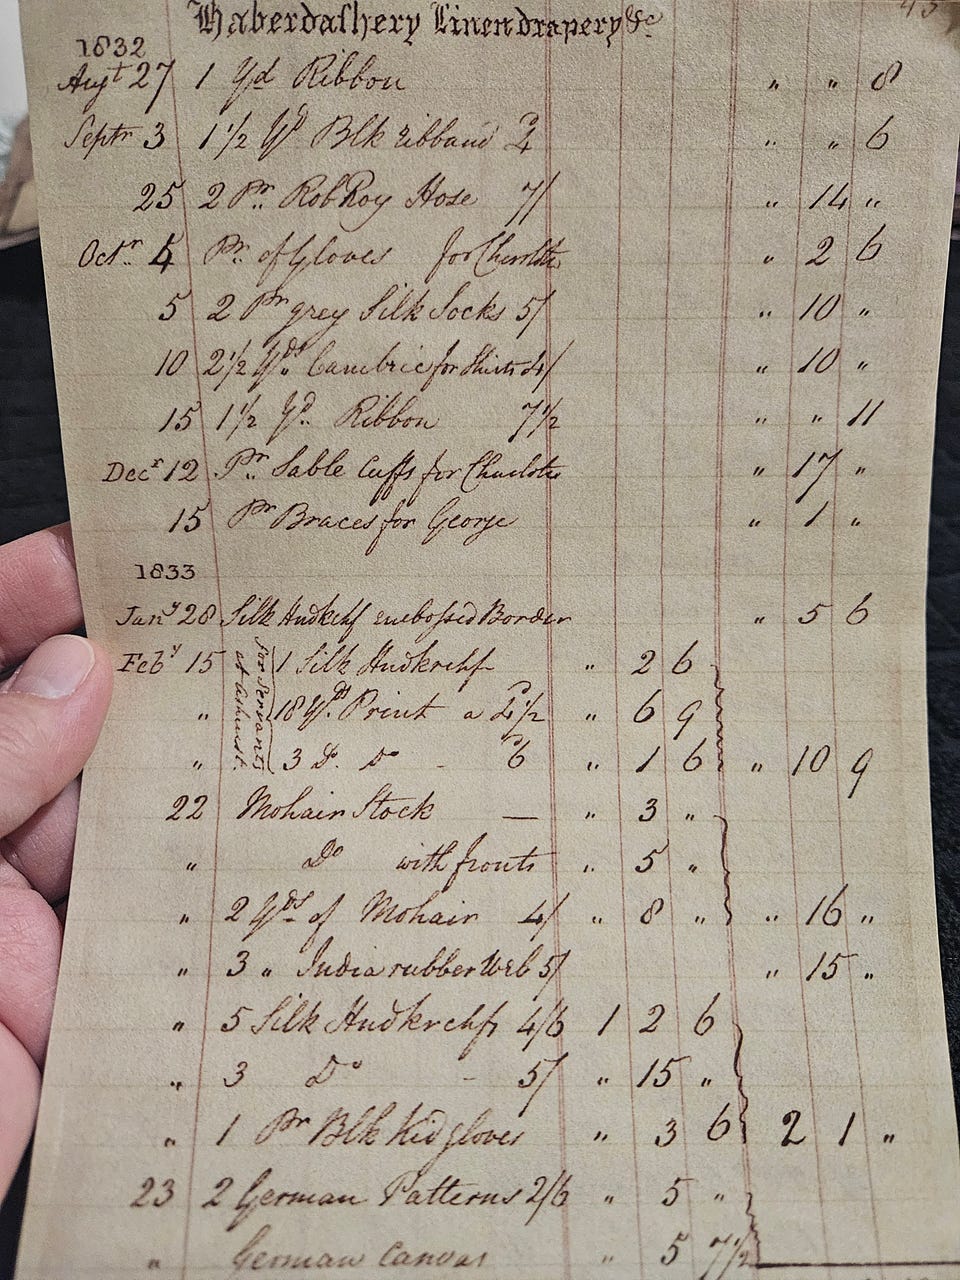 Haberdashery Linendrapery &c
1832
Augt 27 1 Yd Ribbon " " 8
Septr 3 1 1/2 Yd Blk ribband 4 " " 6
25 2 Pr. Rob Roy Hose 7/ " 14 "
Octr. 4 Pr. of Gloves for Charlotte " 2 6
5 2 Pr grey Silk Socks 5/ " 10 "
10 2 1/2 Yds Cambric for Shirts 4/ " 10 "
15 1 1/2 Yd. Ribbon 7 1/2 " " 11
Decr 12 Pr. Sable Cuffs for Charlotte " 17 "
15 Pr Braces for George " 1 "
1833
Jany 28 Silk Hndkchf embossed Border " 5 6
Feby 15 1 Silk Hndkrchf " 2 6
for Servants at Ashurst.
" 18 Yds Print a 4 1/2 " 6 9
" 3 Do. Do - 6 " 1 6 " 10 9
22 Mohair Stock — " 3 "
" Do with fronts " 5 "
" 2 Yds of Mohair 4/ " 8 " " 16 "
" 3 " India rubber Web 5/ " 15 "
" 5 Silk Hndkrchfs 4/6 1 2 6
" 3 Do - 5/ " 15 "
" 1 Pr Blk Kid gloves " 3 6 2 1 "
23 2 German Patterns 2/6 " 5 "
" German Canvas " 5 7 1/2